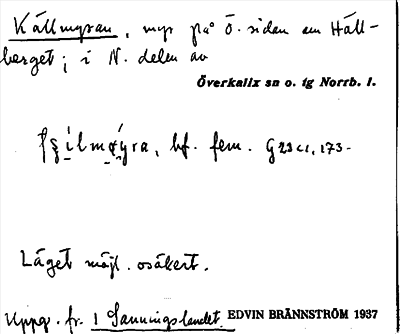 Källmyran, myr på Ö. sidan om Häll-
berget; i N. delen av
Överkalix sn o. tg Norrb. l.
bf. fem.
Läget möjl. osäkert.
Uppg. fr. 1 Sanningslandet. EDVIN BRÄNNSTRÖM 1937